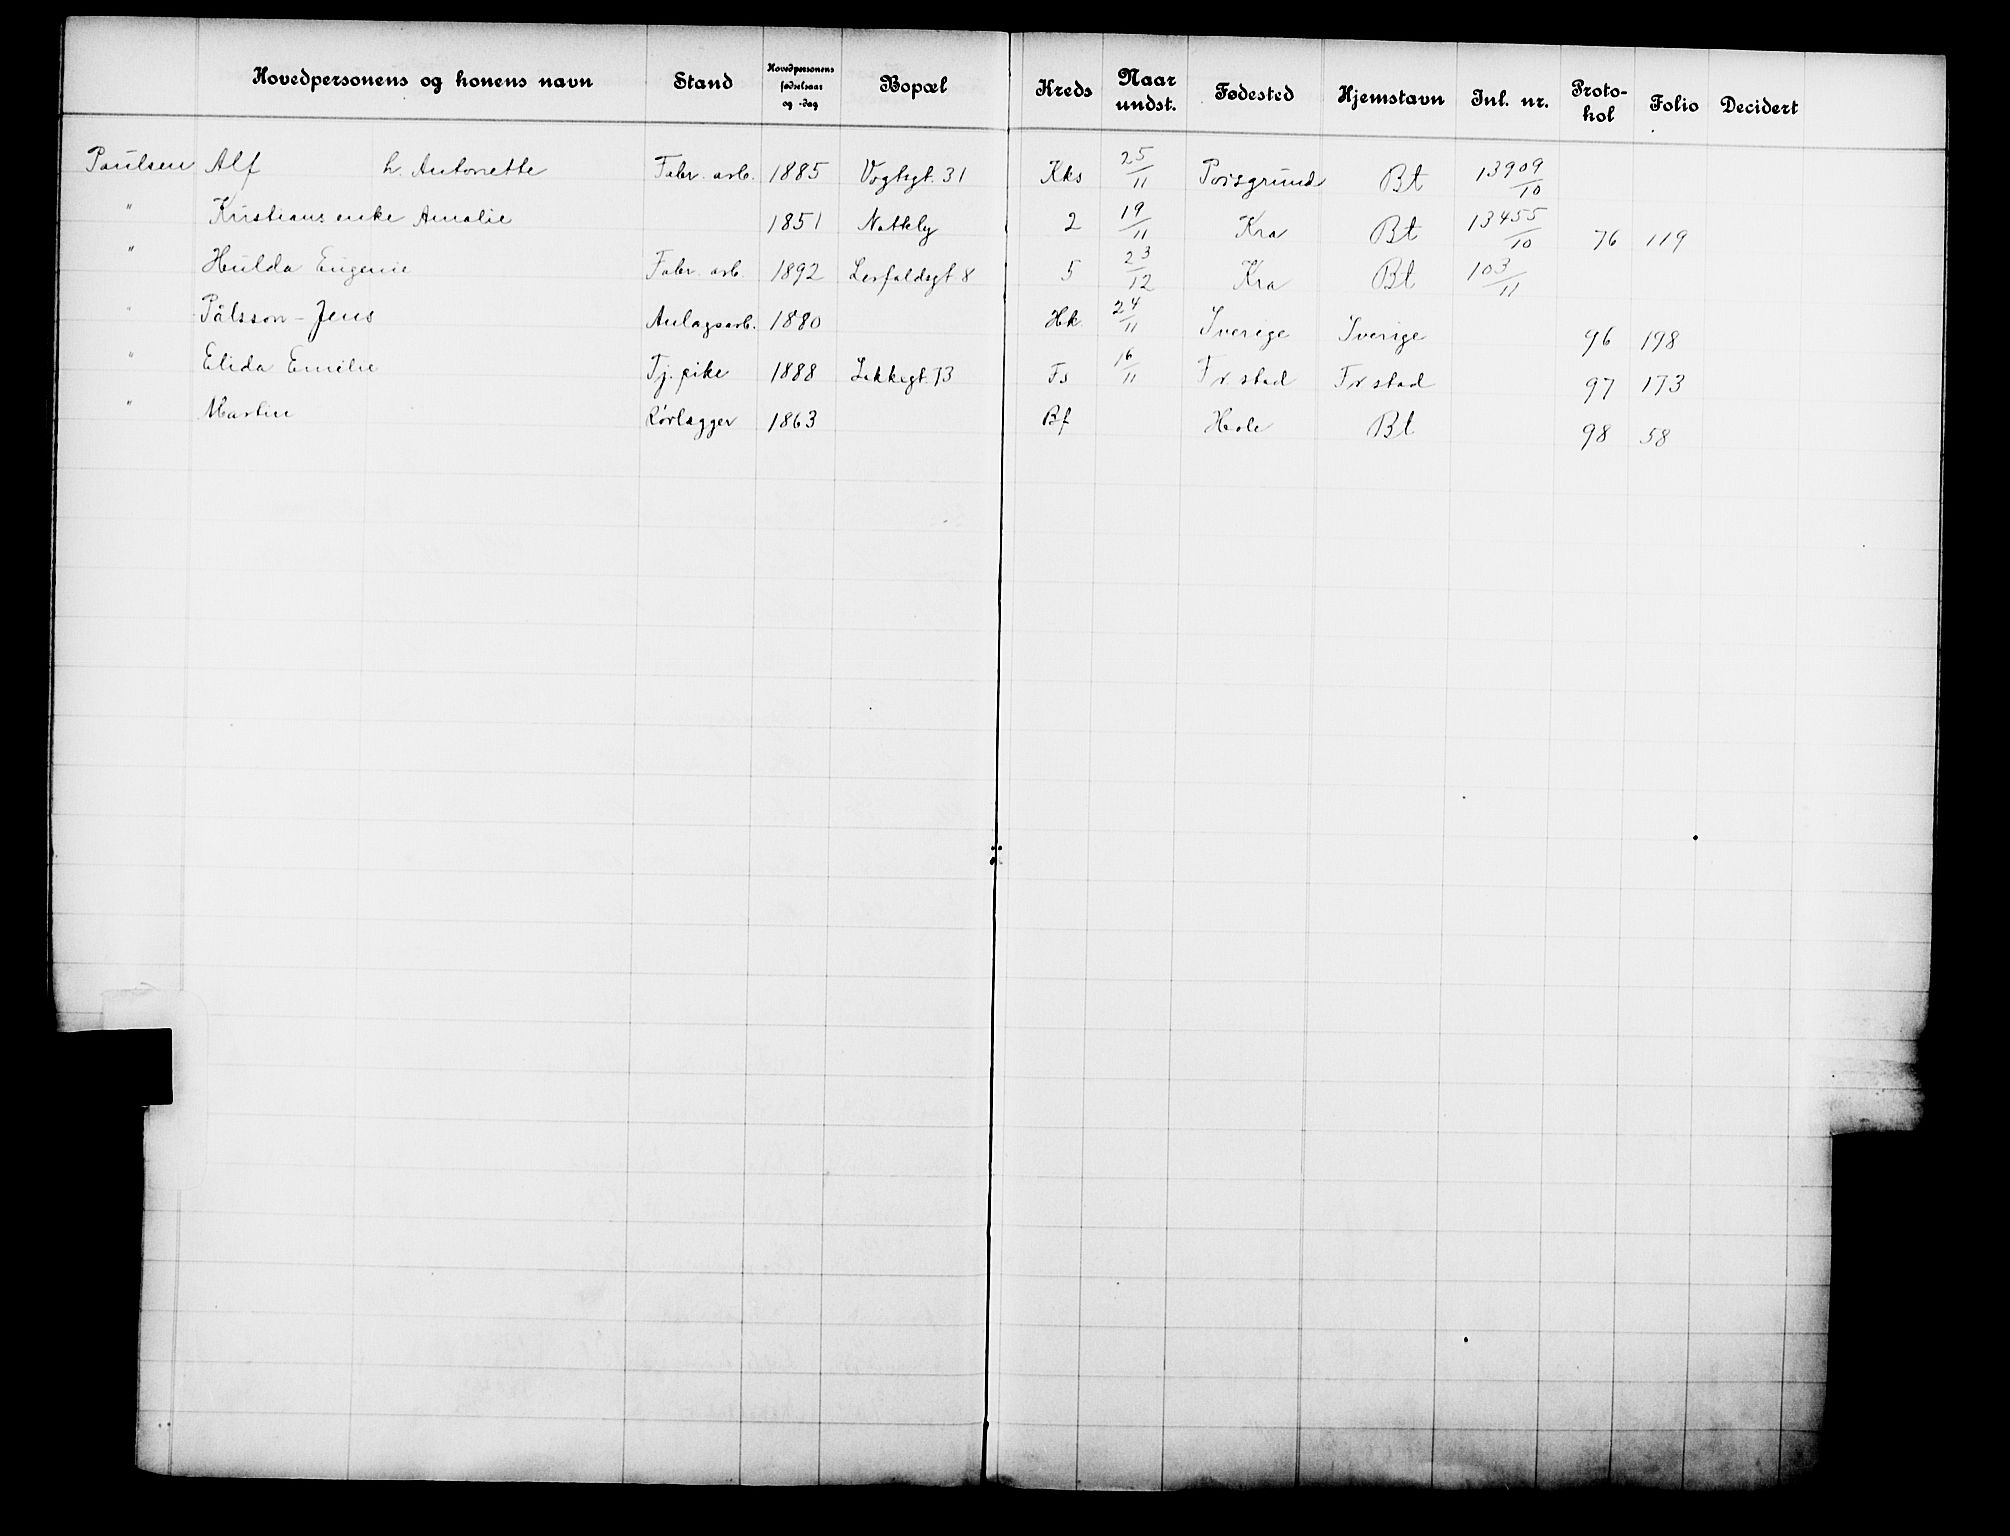 Hovedpersonens og konens navn Stand Hovedpersonens fødselsaar og -dag Bopæl Kreds Naar undst. Fødested Hjemstavn Jnl. nr. Proto-kol Folio Decidert
Paulsen Alf h. Antonette Fabr. arb. 1885 Vogtsgt. 31 Kks 25/11 Porsgrund Bt 13909/10
" Kristians enke Amalie 1851 2 19/11 Kra Bt 13455/10 76 119
" Hulda Eugenie Fabr. arb. 1892 8 5 23/12 Kra Bt 103/11
" Pålsson - Jens Anlagsarb. 1880 Hk. 24/11 Sverige Sverige 96 198
" Elida Emilie Tj. pike 1888 Lakkegt. 73 Fs 16/11 Fr stad Fr stad 97 173
" Martin Rörlægger 1863 Bf Hole Bt 98 58